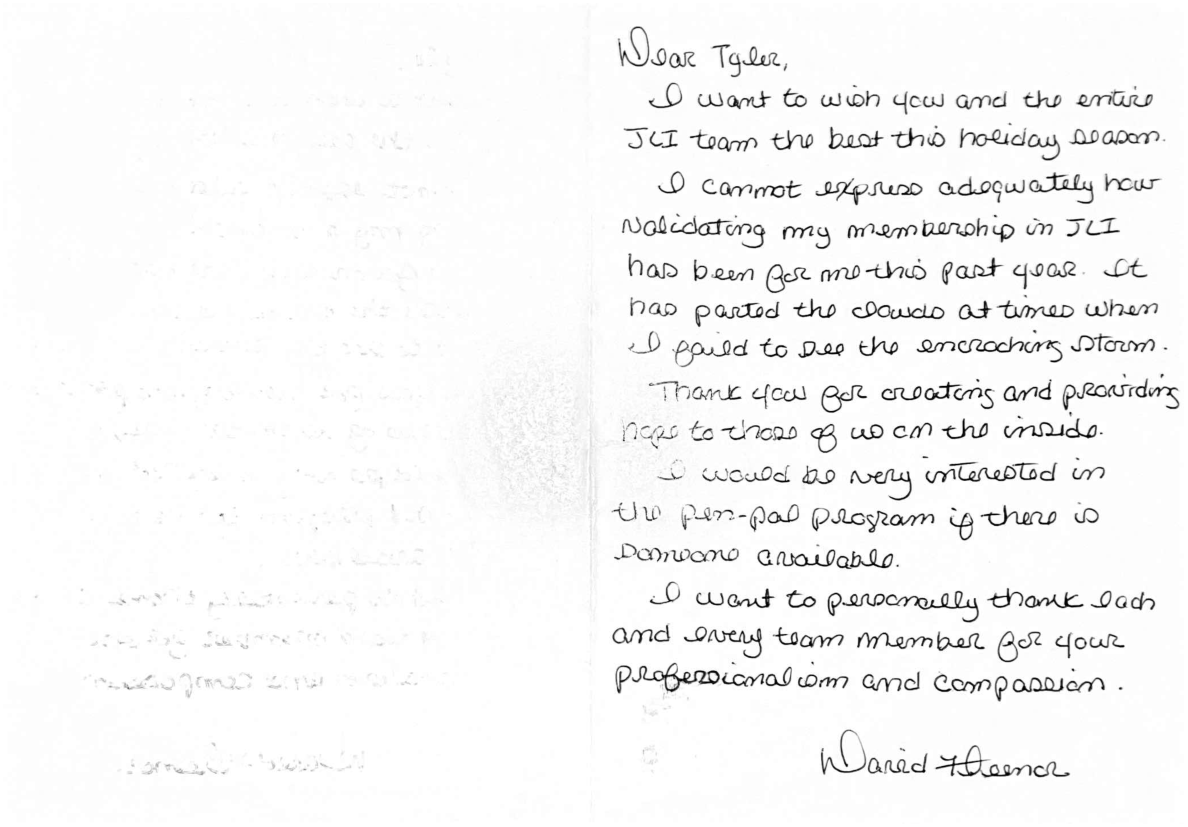 Dear Tyler,
I want to wish you and the entire
JLI team the best this holiday season.
I cannot express adequately how
validating my membership in JLI
has been for me this past year. It
has parted the clouds at times when
I faild to see the encroching storm.
Thank you for creating and providing
hope to those of us on the inside.
I would be very interested in
the pen-pal program if there is
someone available.
I want to personally thank each
and every team member for your
professionalism and compassion.
David